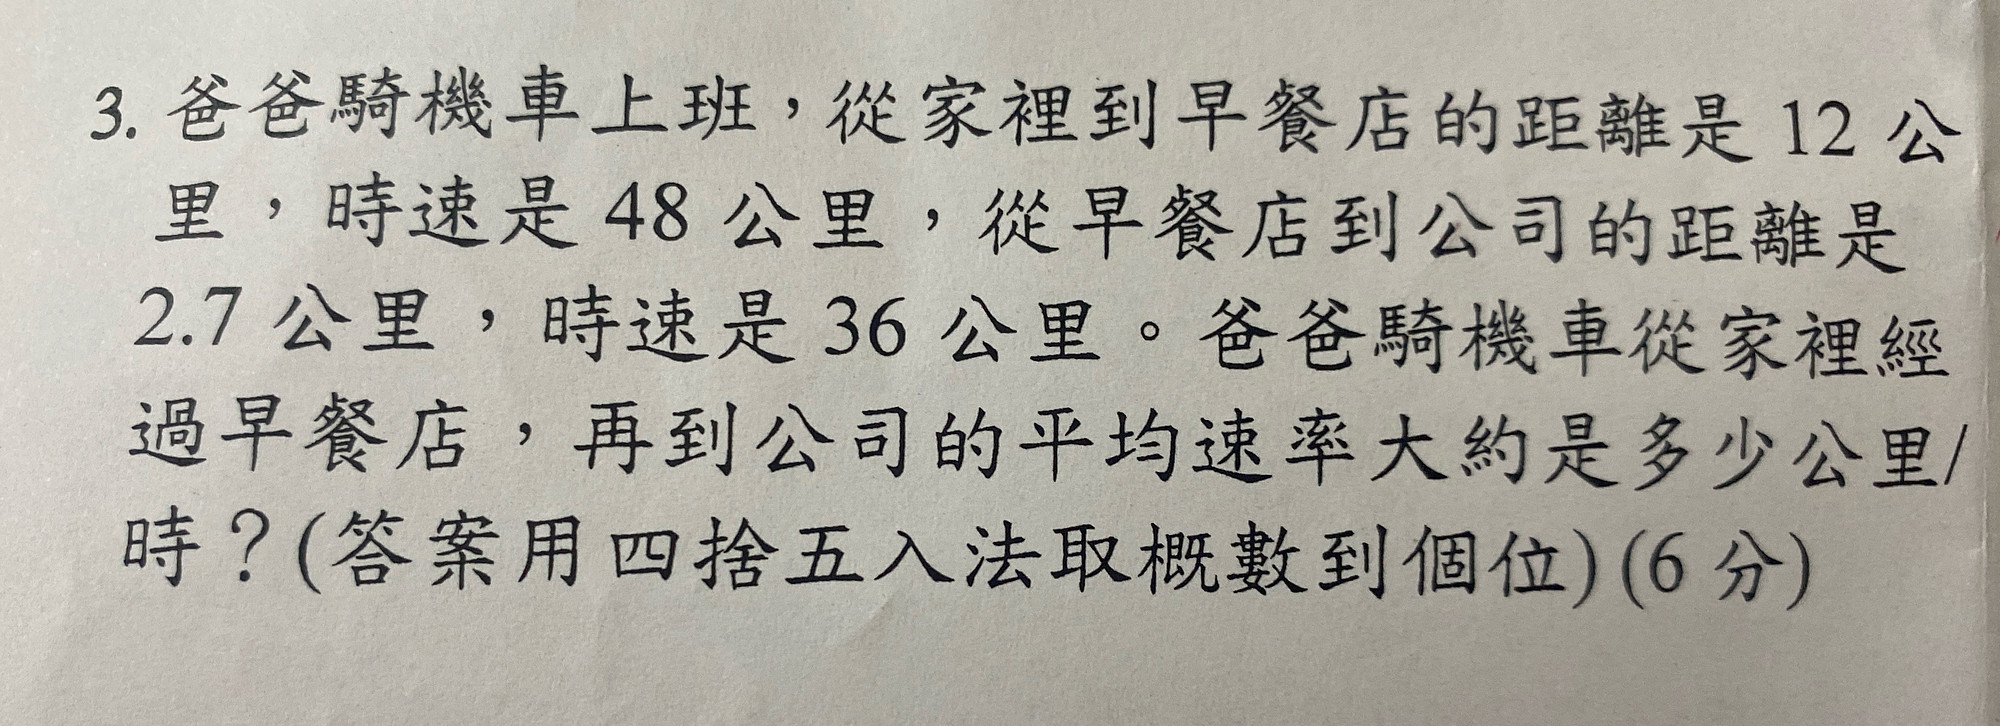 3. 爸爸騎機車上班，從家裡到早餐店的距離是 12 公
里，時速是 48 公里，從早餐店到公司的距離是
2.7 公里，時速是 36 公里。爸爸騎機車從家裡經
過早餐店，再到公司的平均速率大約是多少公里/
時？(答案用四捨五入法取概數到個位) (6 分)